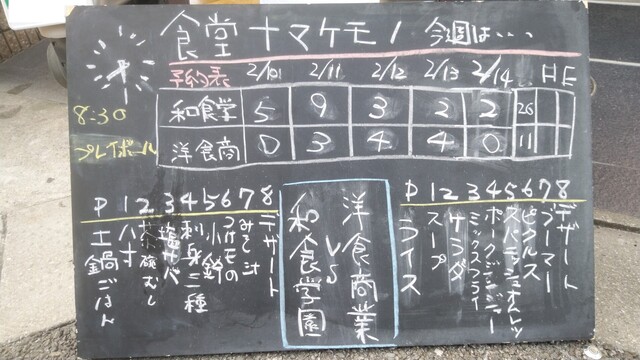 食堂ナマケモノ 今週は...
8:30
プレイボール
予約表 2/10 2/11 2/12 2/13 2/14 H E
和食学 5 9 3 2 2 26
洋食商 0 3 4 4 0 11
P 土鍋ごはん
1 八寸
2 茶碗むし
3 塩サバ
4 刺身二種
5 小鉢
6 つけもの
7 みそ汁
8 デザート
洋食商業
VS
和食学園
P ライス
1 スープ
2 サラダ
3 ミックスフライ
4 ポークジンジャー
5 スパニッシュオムレツ
6 ピクルス
7 ブーマー
8 デザート